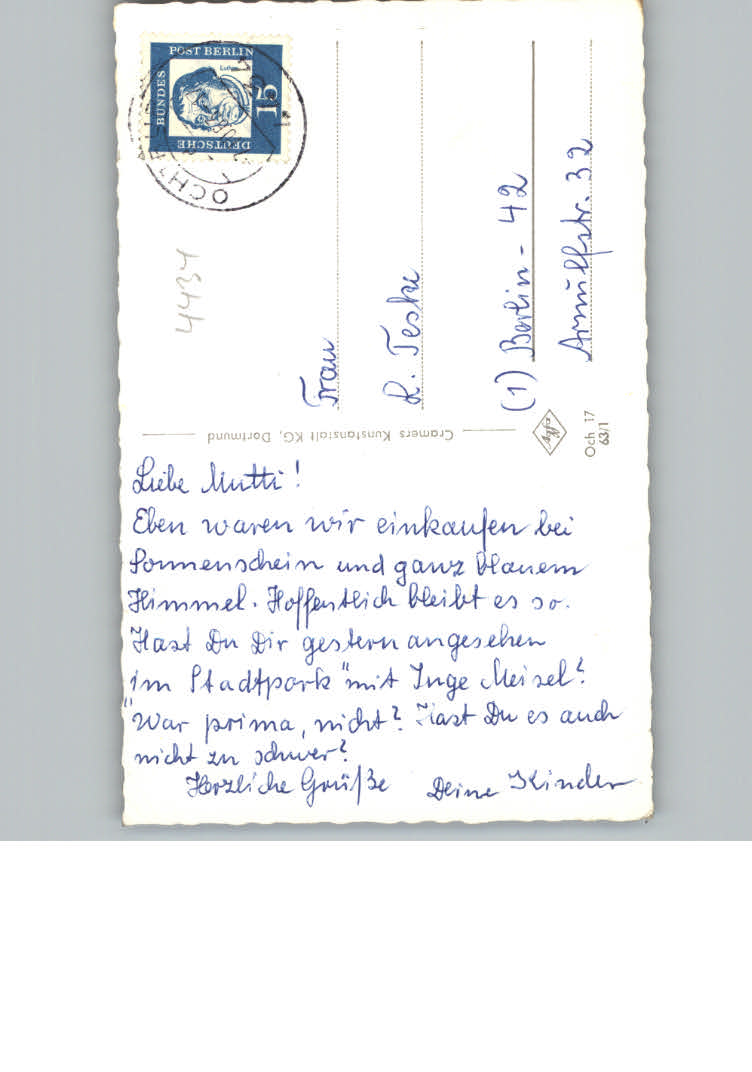 Liebe Mutti!
Eben waren wir einkaufen bei
Sonnenschein und ganz blauem
Himmel. Hoffentlich bleibt es so.
Hast Du Dir gestern angesehen
„im Stadtpark" mit Inge Meisel?
War prima, nicht? Hast Du es auch
nicht zu schwer?
Herzliche Grüße Deine Kinder
Frau
R. Teske
(1) Berlin - 42
Arnulfstr. 32
Cramers Kunstanstalt KG, Dortmund
Och 17
63/1
4434
DEUTSCHE BUNDES POST BERLIN
15
Luther